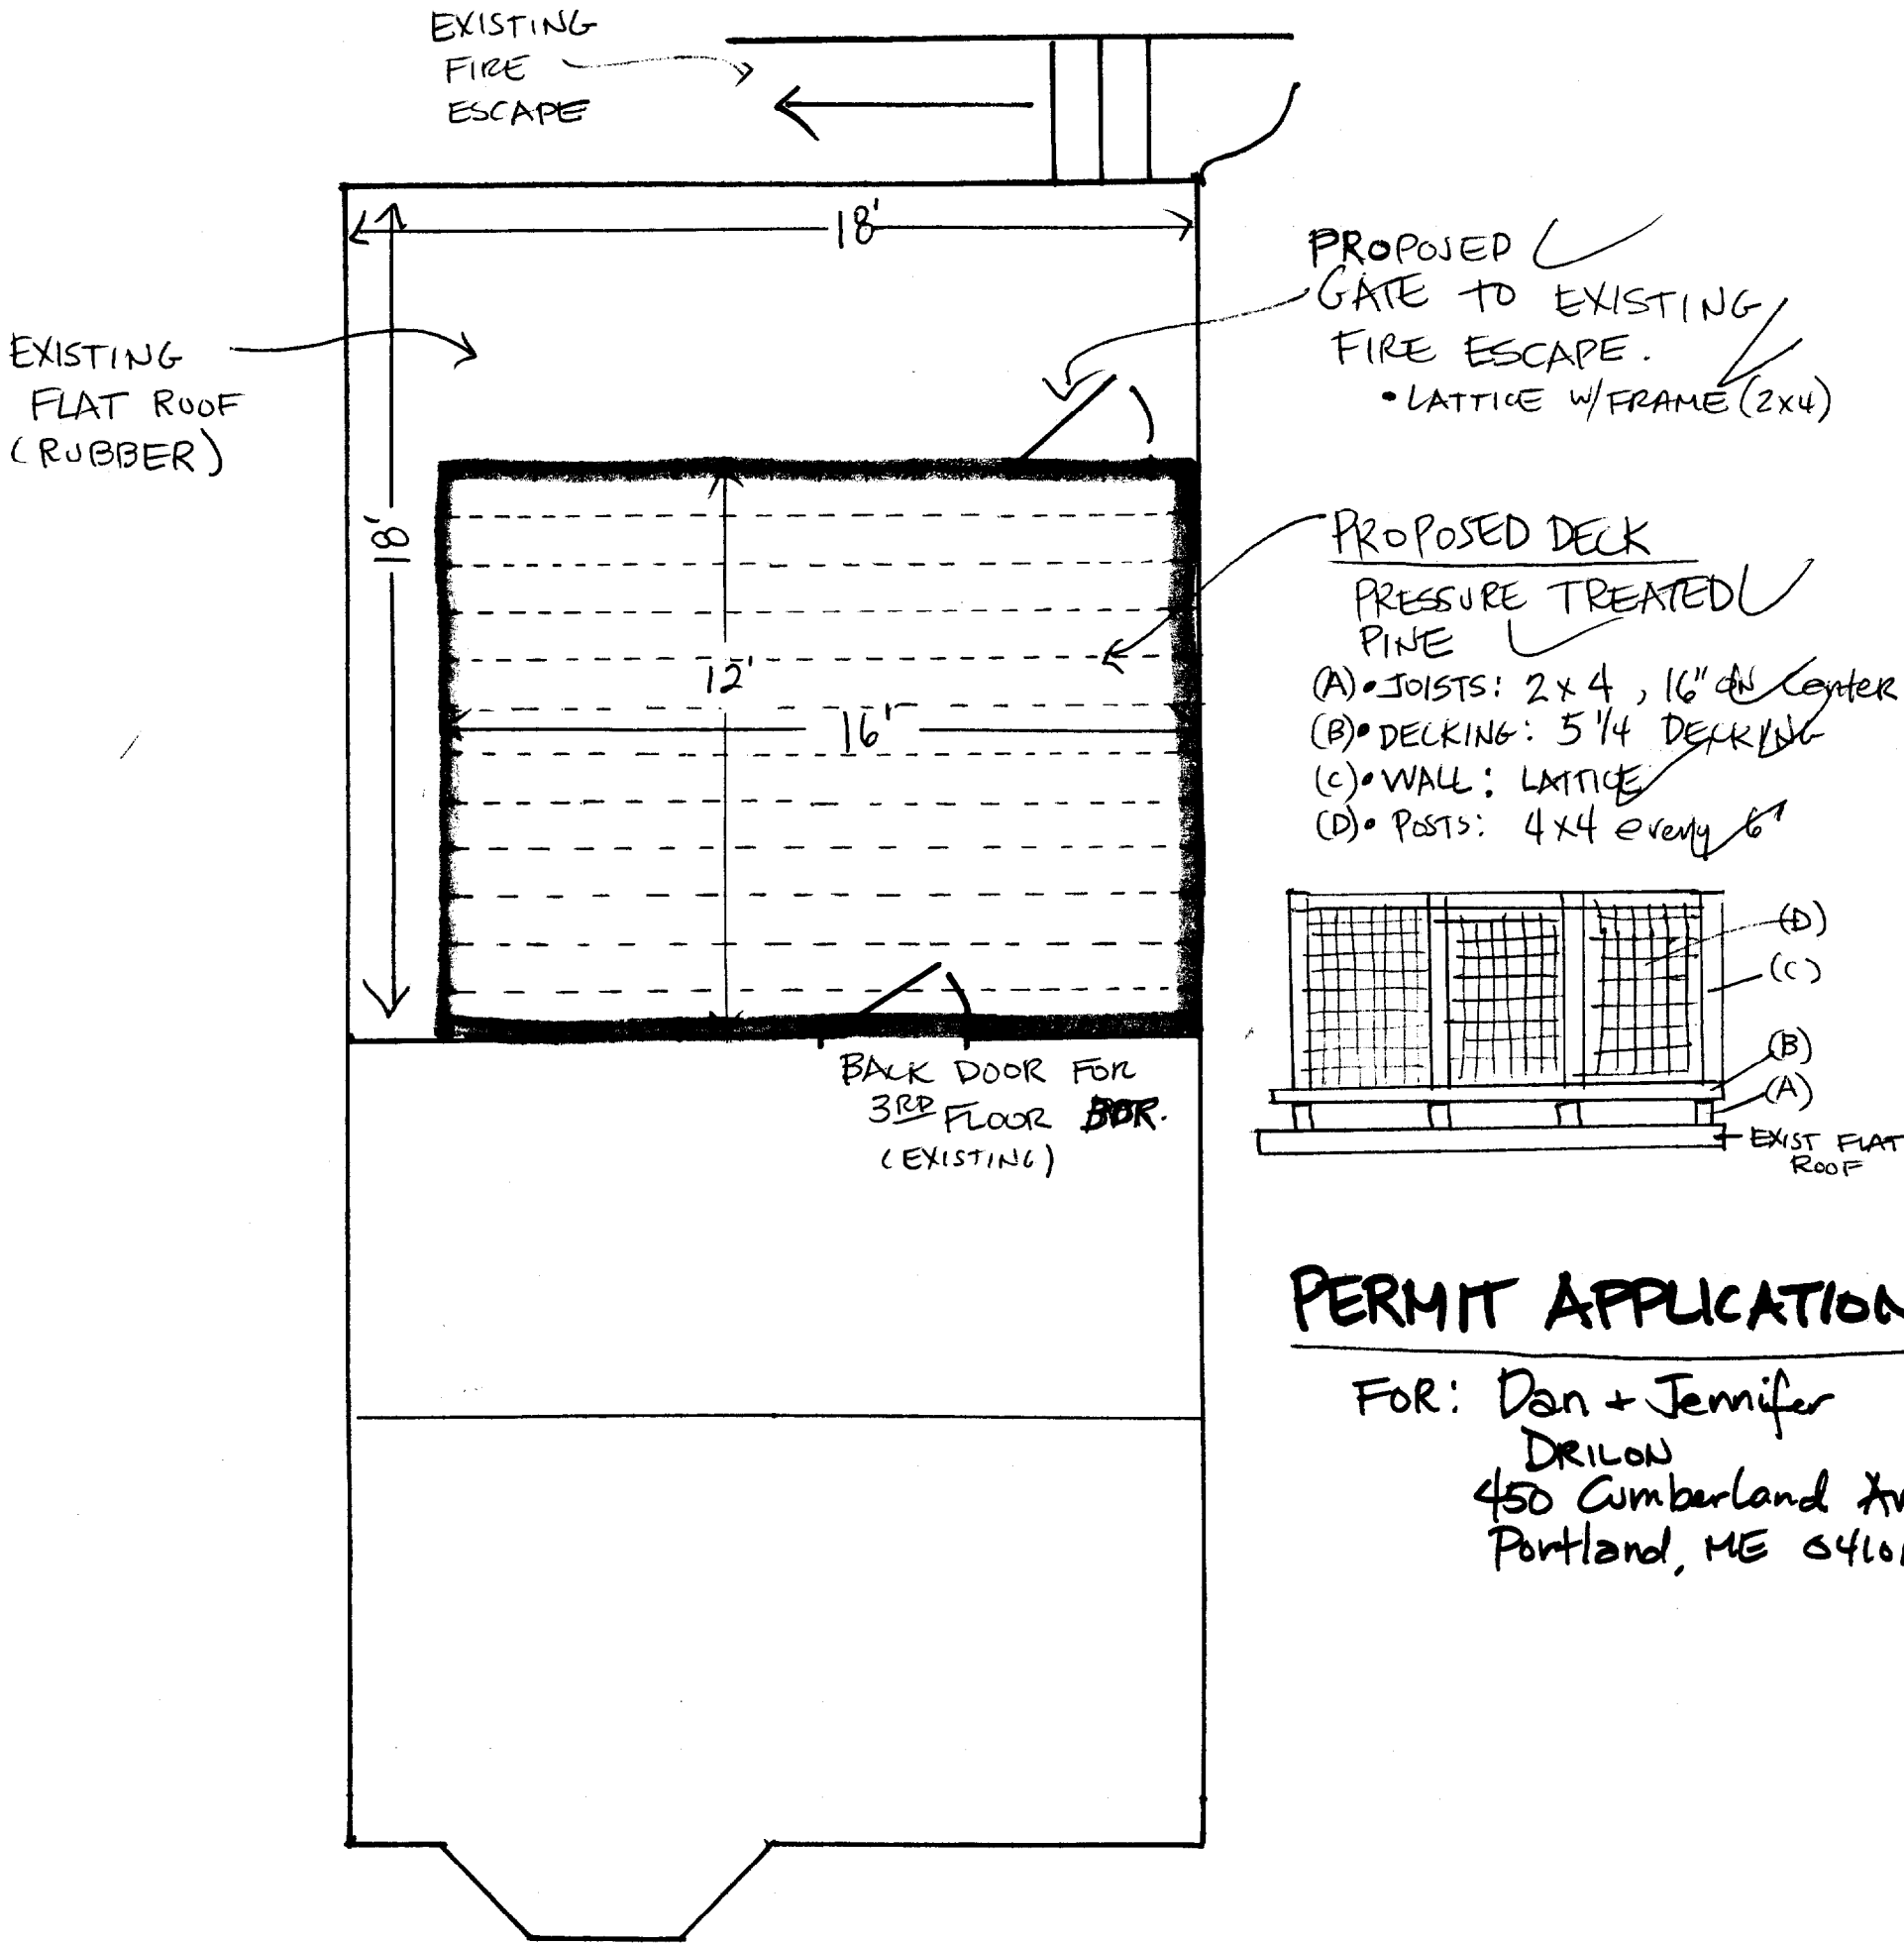 EXISTING
FIRE
ESCAPE
18'
EXISTING
FLAT ROOF
(RUBBER)
18'
PROPOSED
GATE TO EXISTING
FIRE ESCAPE.
• LATTICE W/ FRAME (2x4)
PROPOSED DECK
PRESSURE TREATED
PINE
(A) • JOISTS: 2x4, 16" ON Center
(B) • DECKING: 5 1/4 DECKING
(C) • WALL: LATTICE
(D) • POSTS: 4x4 every 6'
12'
16'
(D)
(C)
(B)
(A)
EXIST FLAT
ROOF
BACK DOOR FOR
3RD FLOOR BDR.
(EXISTING)
PERMIT APPLICATION
FOR: Dan + Jennifer
DRILON
450 Cumberland Av
Portland, ME 04101